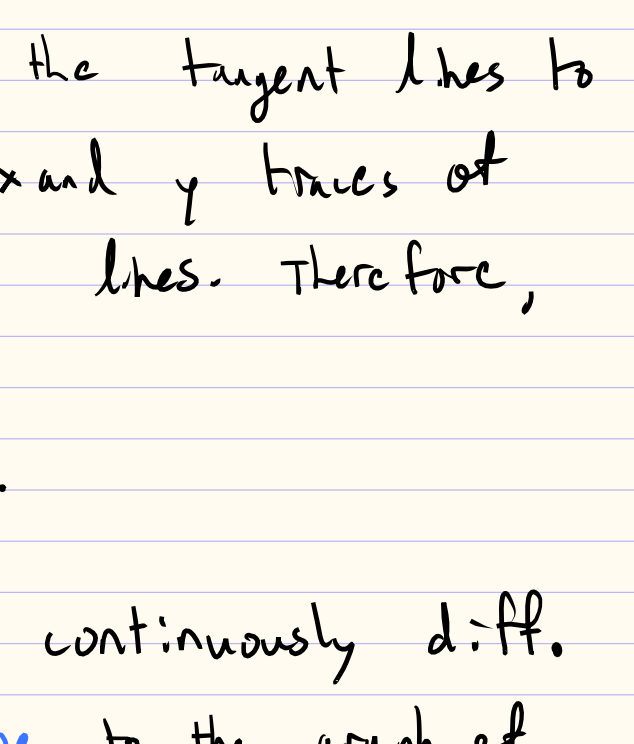 the tangent lines to
x and y traces of
lines. Therefore,
.
continuously diff.
to the graph of